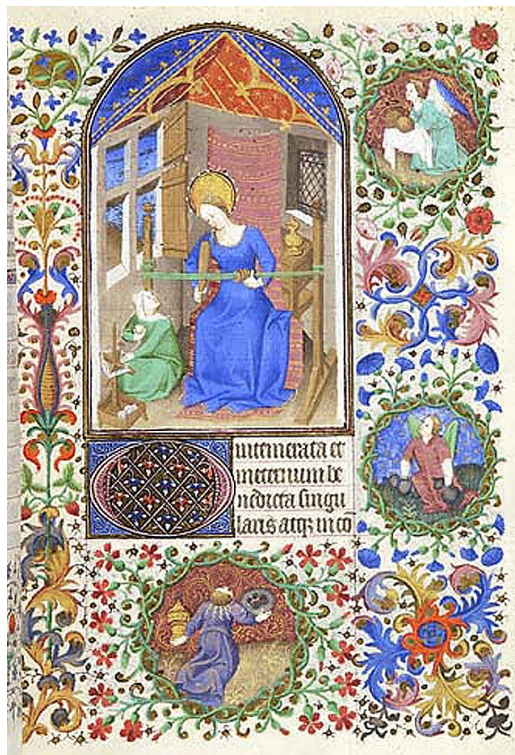 O intemerata et
in eternum be
nedicta singu
laris atqꝫ inco